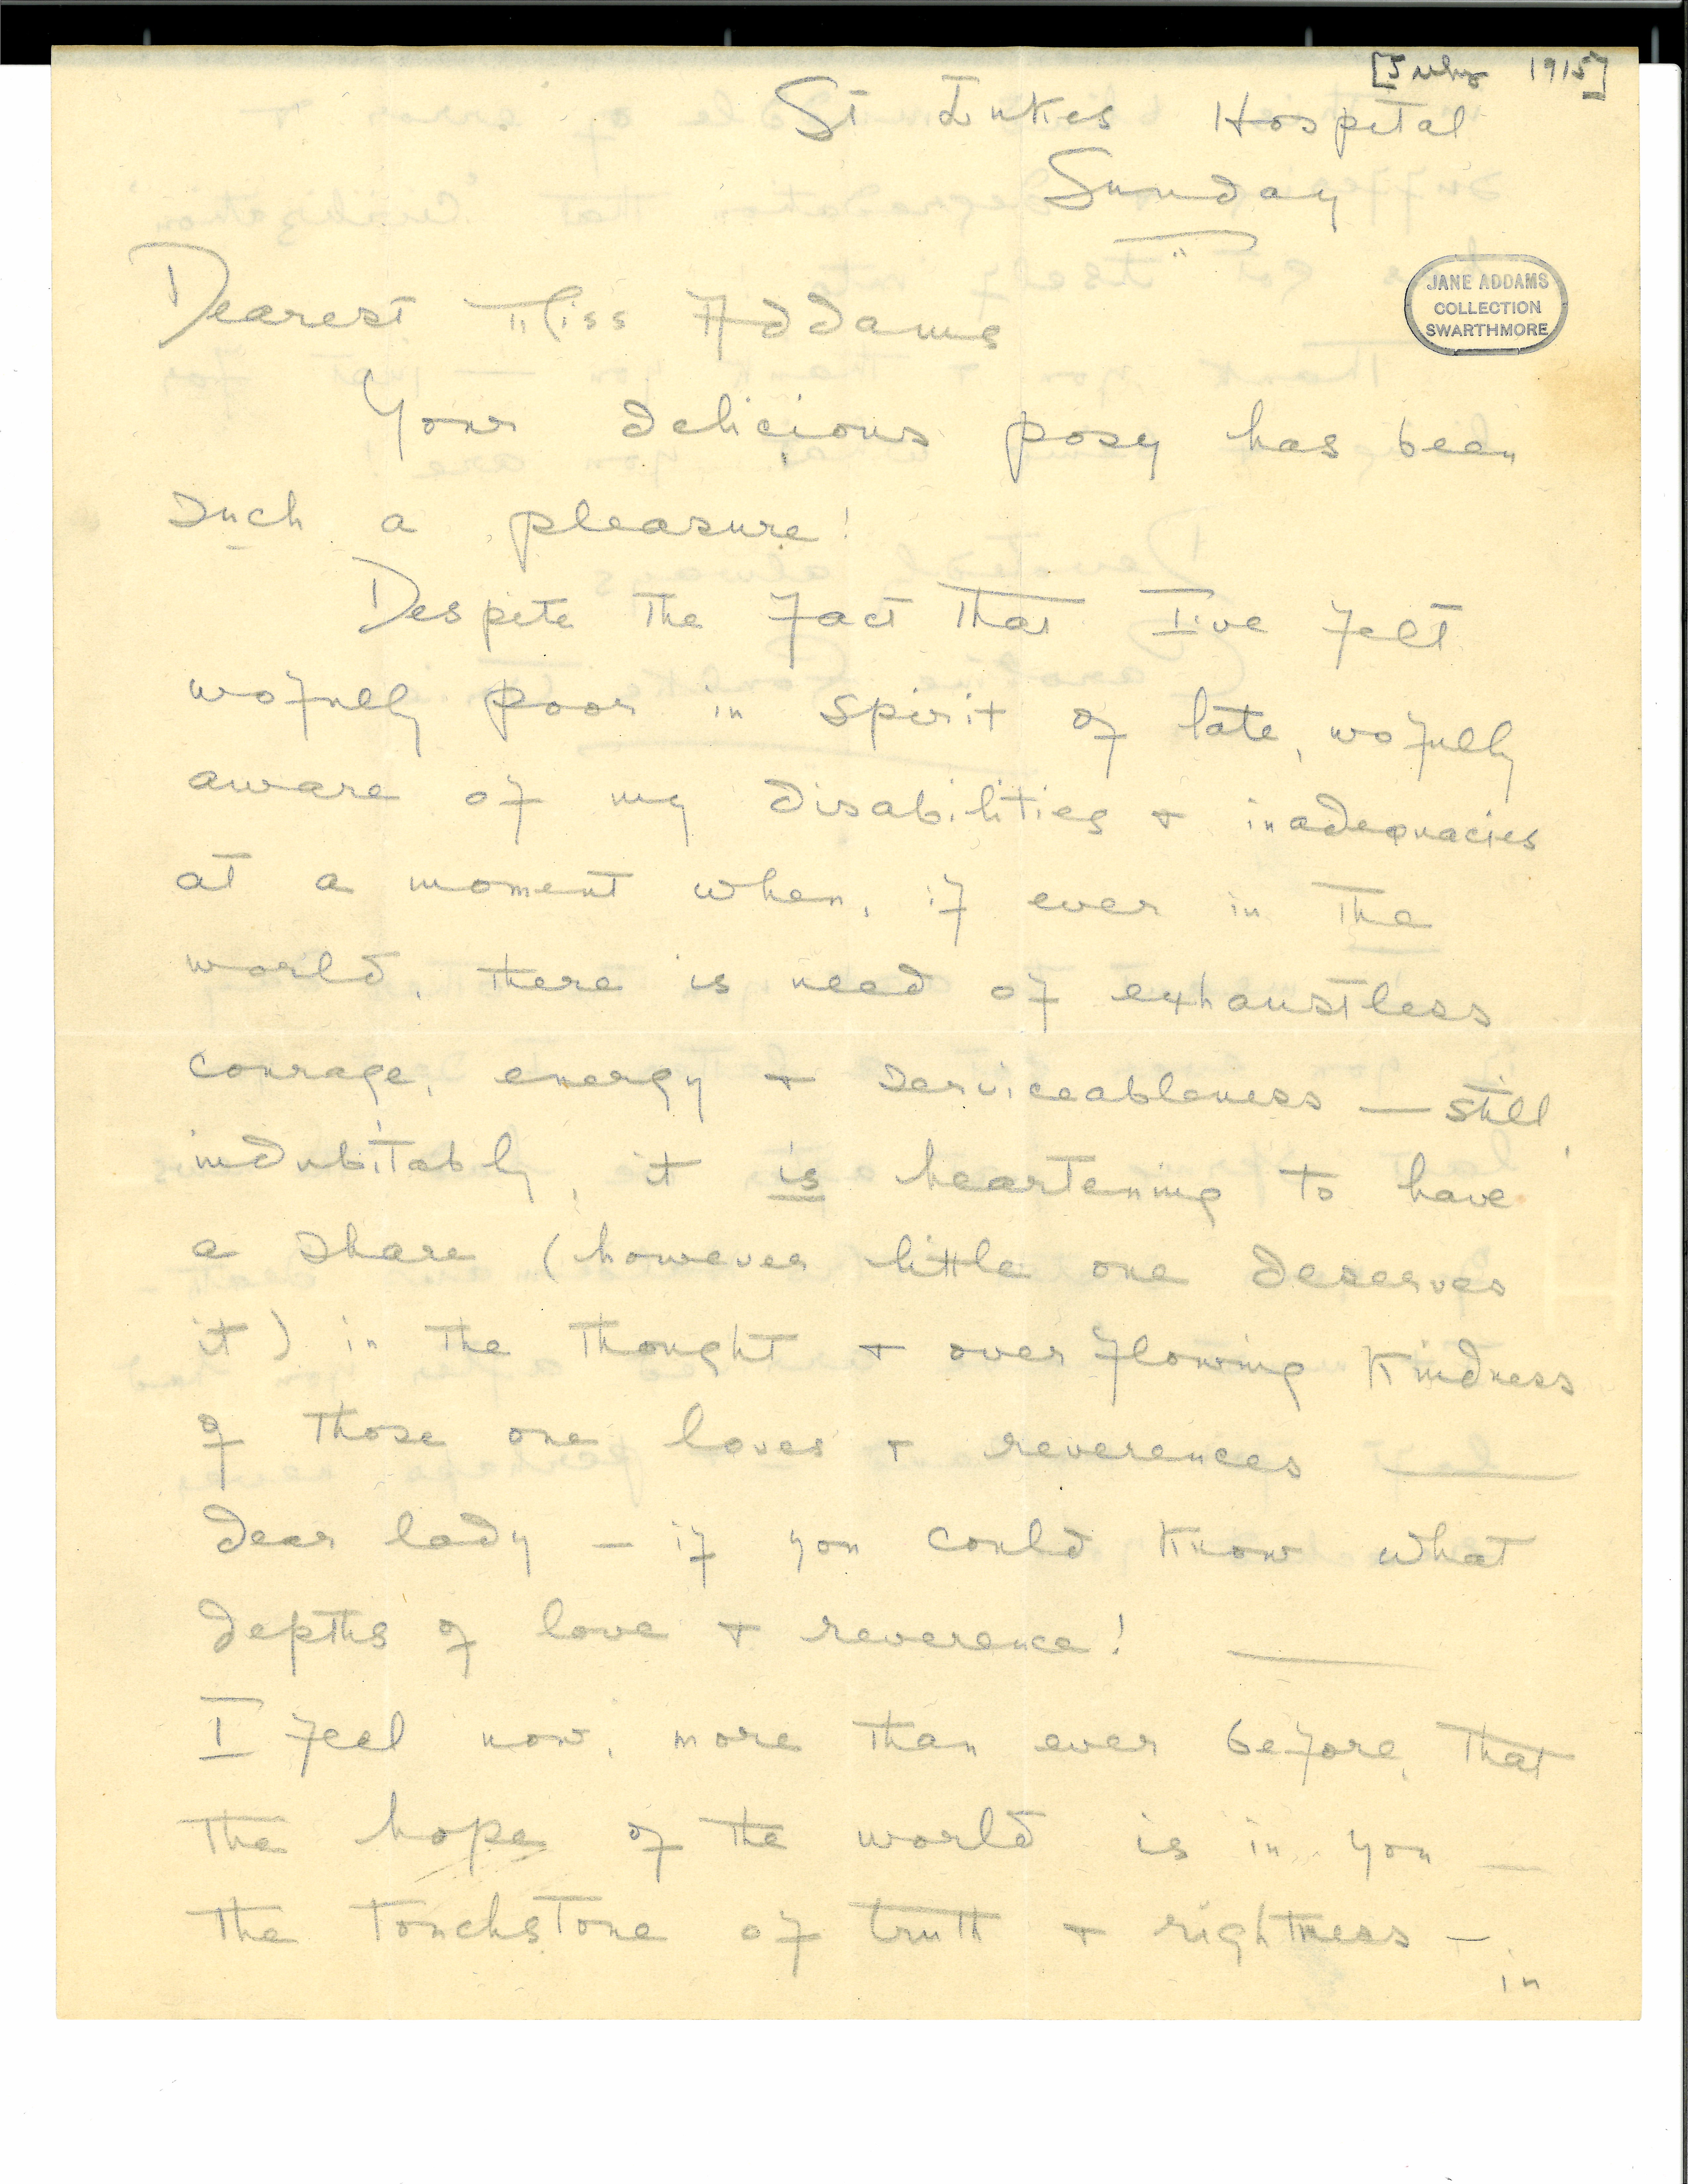 1915]
St Lukes Hospital
Sunday
JANE ADDAMS
COLLECTION
SWARTHMORE
Dearest Miss Addams
Your delicious posy has been
such a pleasure!
Despite the fact that I've felt
wofully poor in spirit of late, wofully
aware of my disabilities + inadequacies
at a moment when, if ever in the
world, there is need of exhaustless
courage, energy + serviceableness — still,
indubitably, it is heartening to have
a share (however little one deserves
it) in the thought + overflowing kindness
of those one loves + reverences —
dear lady — if you could know what
depths of love + reverence! —
I feel now, more than ever before, that
the hope of the world is in you —
the touchstone of truth + rightness —
in